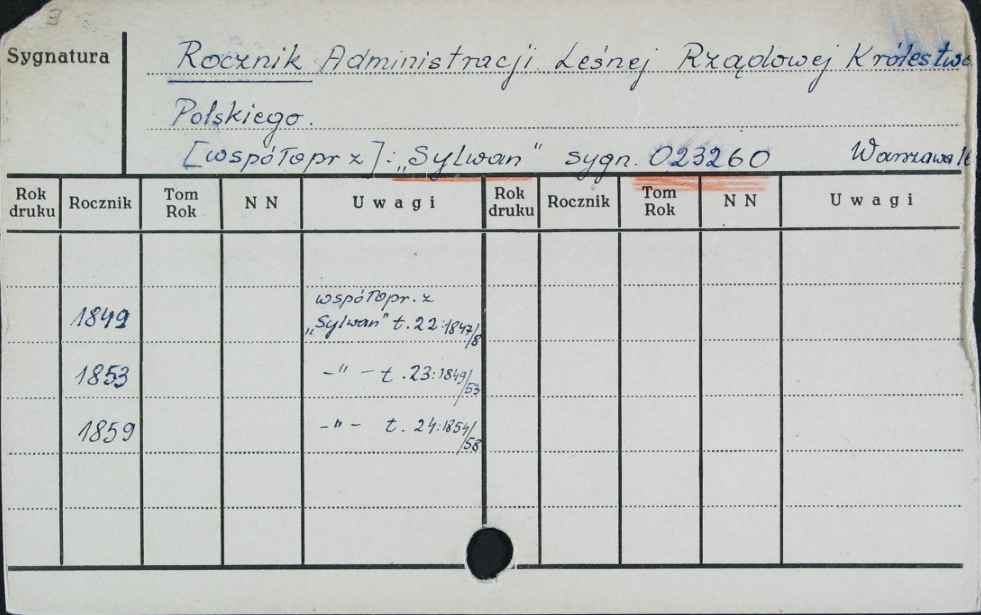 Sygnatura
Rocznik Administracji Leśnej Rządowej Królestwa
Polskiego.
[współopr z]: „Sylwan" sygn. 023260 Warszawa
Rok druku Rocznik Tom Rok N N Uwagi Rok druku Rocznik Tom Rok N N Uwagi
współopr. z
1849 „Sylwan" t. 22:1847/8
1853 -"- t. 23:1849/53
1859 -"- t. 24:1854/58